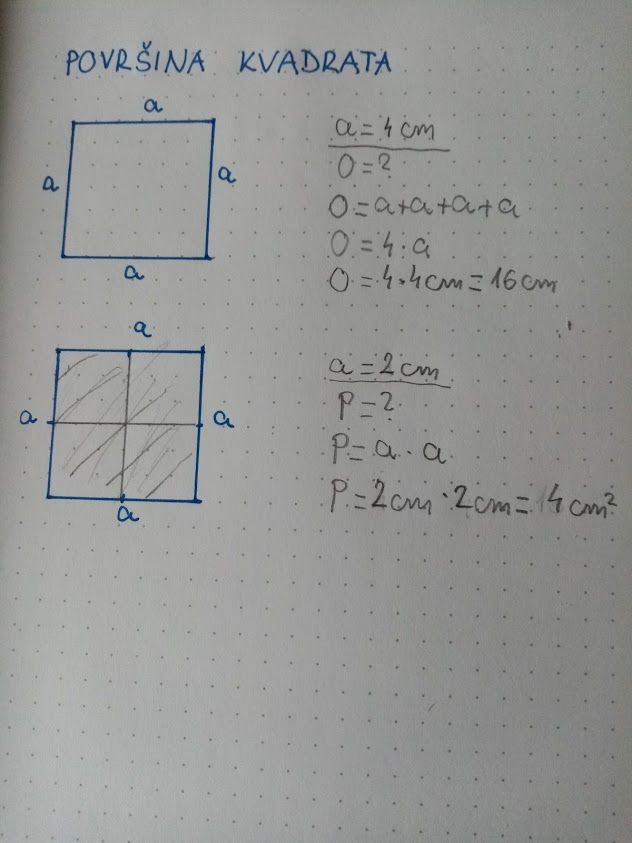 POVRŠINA KVADRATA
a
a
a
a
a = 4 cm
O = ?
O = a + a + a + a
O = 4 · a
O = 4 · 4 cm = 16 cm
a
a
a
a
a = 2 cm
P = ?
P = a · a
P = 2 cm · 2 cm = 4 cm²